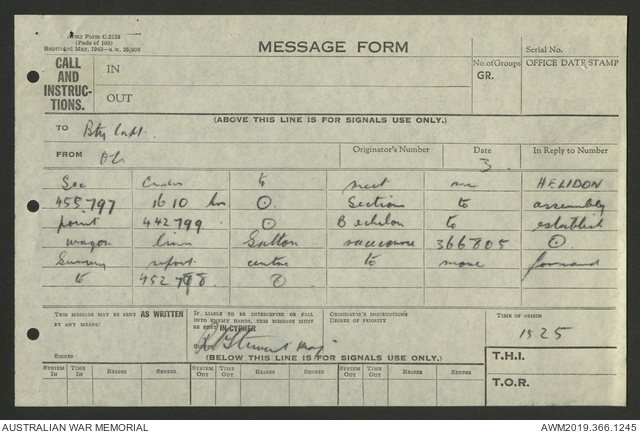 Army Form C.2128
(Pads of 100)
Reprinted May, 1943
MESSAGE FORM
Serial No.
CALL AND INSTRUC-TIONS.
IN
OUT
No. of Groups
GR.
OFFICE DATE STAMP
(ABOVE THIS LINE IS FOR SIGNALS USE ONLY.)
TO Bty Capt.
FROM
Originator's Number
Date
3
In Reply to Number
Sec to meet me HELIDON
455797 1610 hrs ⊙ Section to assembly
point 442799 ⊙ B echelon to establish
wagon lines Gatton racecourse 366805 ⊙
Survey report centre to move forward
to ⊙
THIS MESSAGE MAY BE SENT AS WRITTEN
BY ANY MEANS:
IF LIABLE TO BE INTERCEPTED OR FALL
INTO ENEMY HANDS, THIS MESSAGE MUST
BE SENT IN CYPHER
ORIGINATOR'S INSTRUCTIONS
DEGREE OF PRIORITY
TIME OF ORIGIN
1525
SIGNED
Stewart Maj
(BELOW THIS LINE IS FOR SIGNALS USE ONLY.)
T.H.I.
T.O.R.
SYSTEM IN TIME IN READER SENDER SYSTEM OUT TIME OUT READER SENDER SYSTEM OUT TIME OUT READER SENDER
AUSTRALIAN WAR MEMORIAL
AWM2019.366.1245